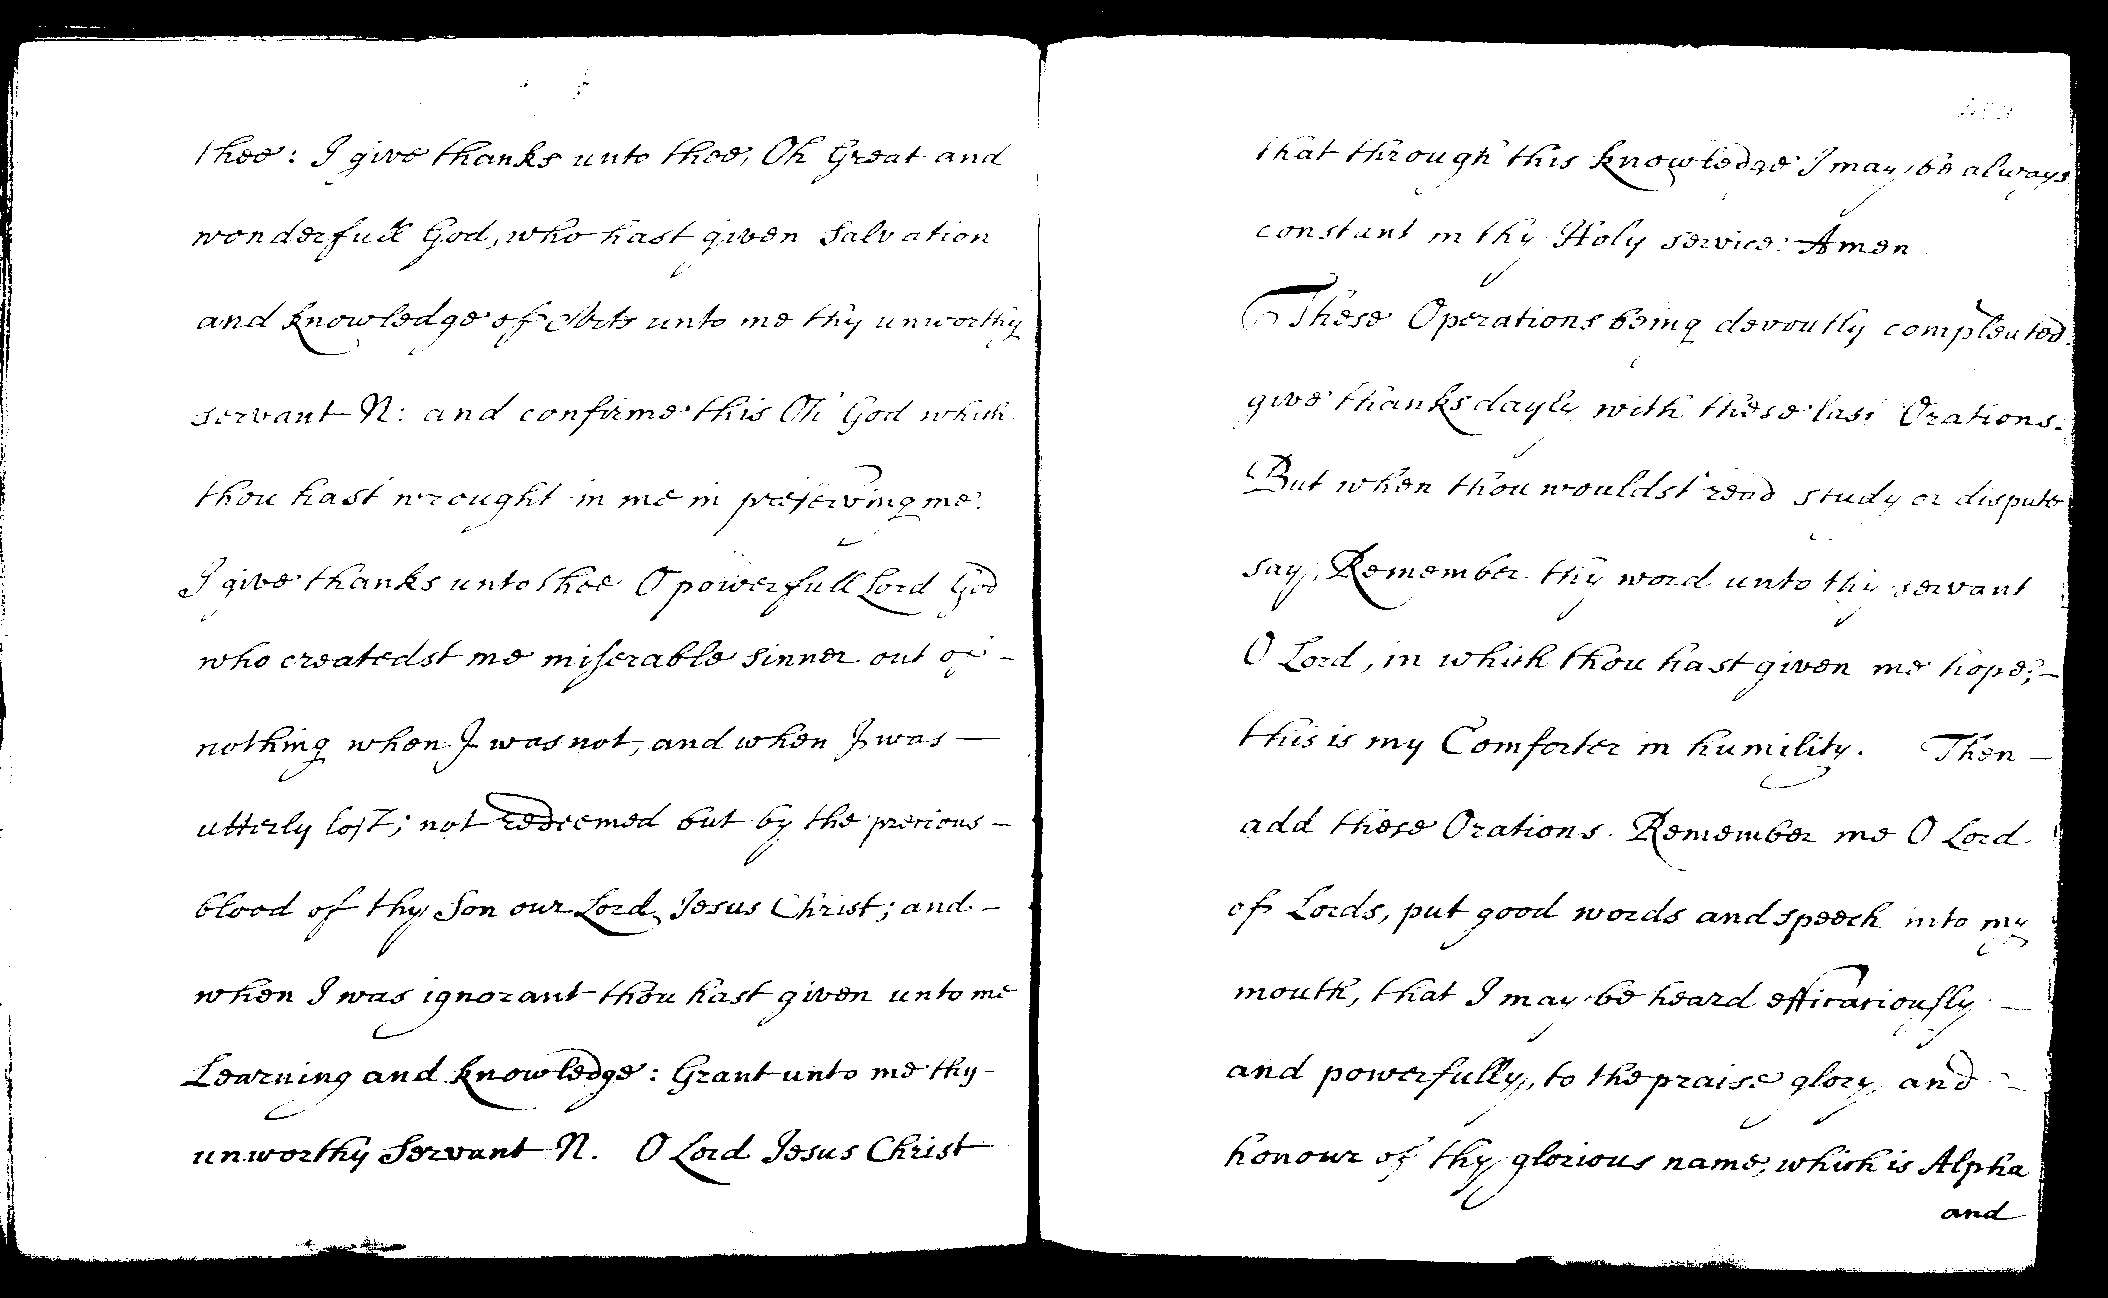 thee: I give thanks unto thee, Oh Great and
wonderfull God, who hast given Salvation
and knowledge of Arts unto me thy unworthy
servant N: and confirme this Oh God which
thou hast wrought in me in preserving me.
I give thanks unto thee O powerfull Lord God
who createdst me miserable sinner out of –
nothing when I was not, and when I was –
utterly lost; not redeemed but by the precious –
blood of thy Son our Lord Jesus Christ; and –
when I was ignorant thou hast given unto me
Learning and knowledge: Grant unto me thy –
unworthy Servant N. O Lord Jesus Christ
that through this knowledge I may be always
constant in thy Holy service: Amen
These Operations being devoutly compleated
give thanks dayly with these last Orations.
But when thou wouldst read study or dispute
say, Remember thy word unto thy servant
O Lord, in which thou hast given me hope; –
this is my Comforter in humility. Then –
add these Orations. Remember me O Lord
of Lords, put good words and speech into my
mouth, that I may be heard efficaciously –
and powerfully, to the praise glory and –
honour of thy glorious name, which is Alpha
and